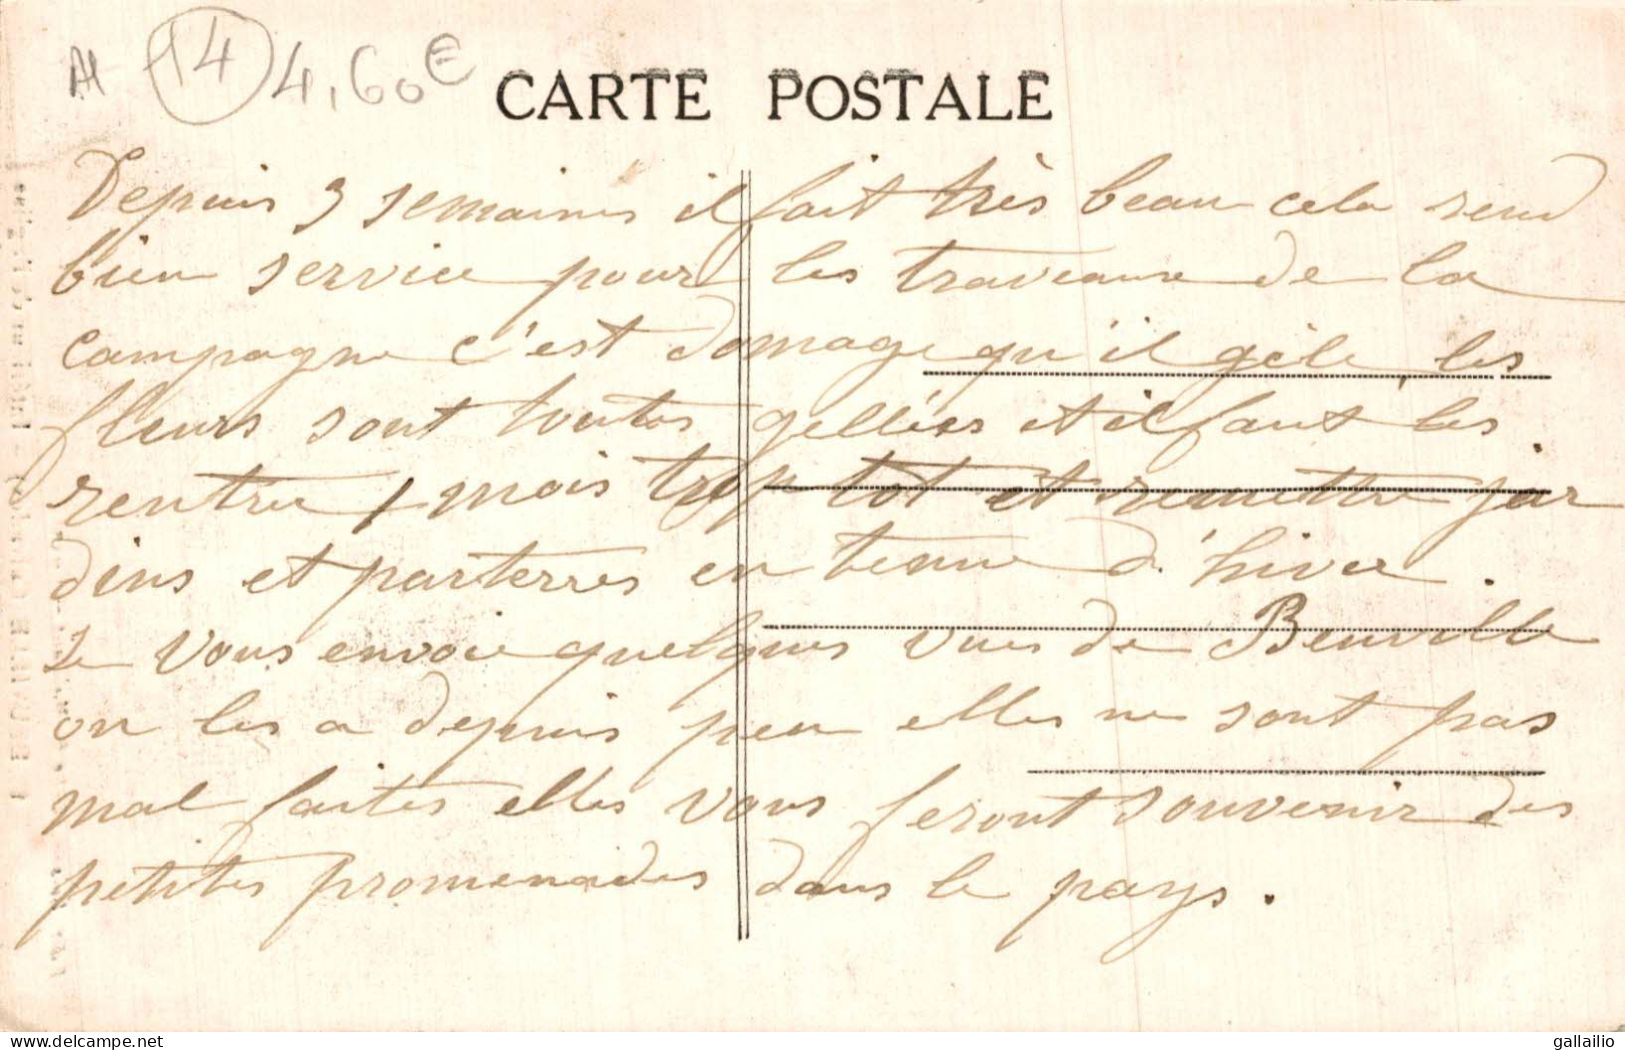 14 4,60€
CARTE POSTALE
Depuis 3 semaines il fait très beau cela rend
bien service pour les traveaux de la
campagne c'est domage qu'il gèle, les
fleurs sont toutes gellées et il faut les
rentrée, 1 mois trop tot et remettre jar
dins et parterres en tenue d'hiver.
Je vous envoie quelques vues de Beuville
on les a depuis peu elles ne sont pas
mal faites elles vous feront souvenir des
petites promenades dans le pays.
delcampe.net
gallailio